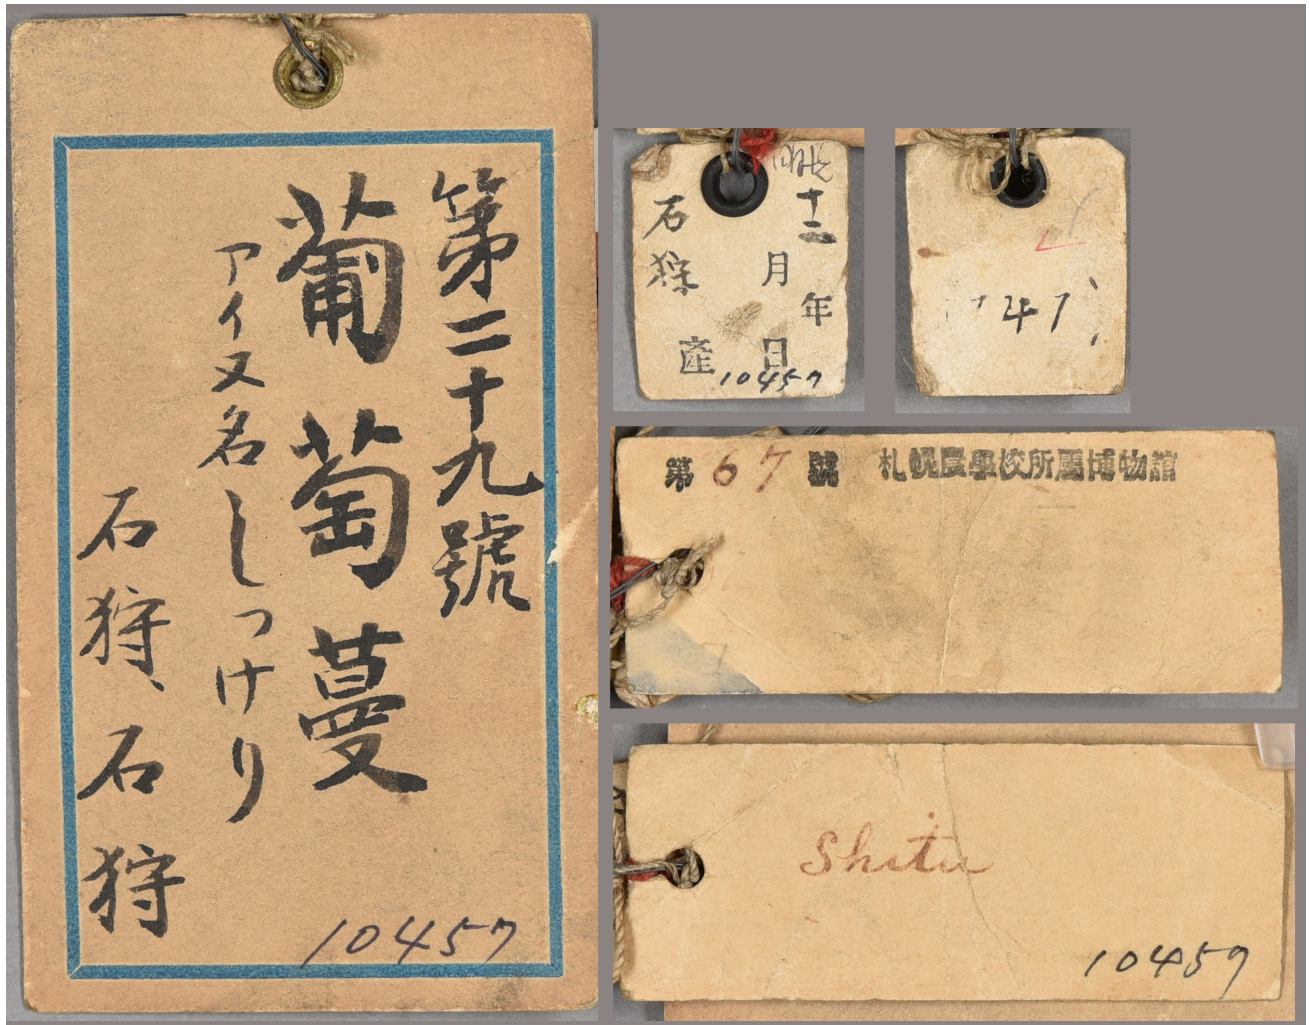 第二十九號
葡萄蔓
アイヌ名しっけり
石狩、石狩
10457
十二年
月日
石狩産
10457
47
第67號 札幌農學校所屬博物館
Shitu
10457